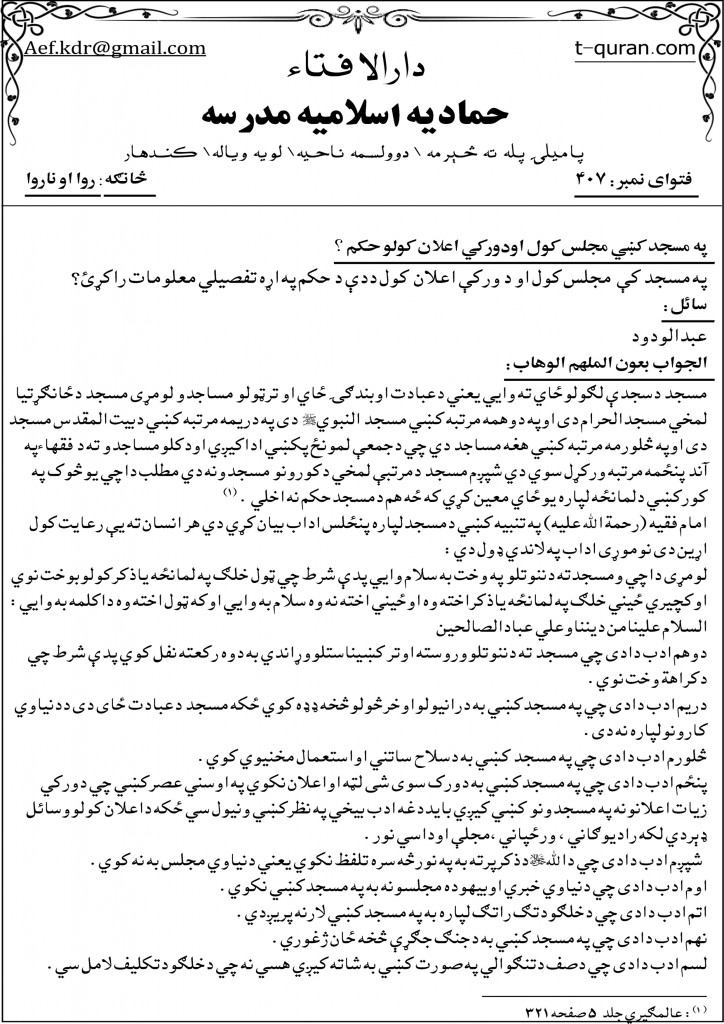 Aef.kdr@gmail.com
t-quran.com
دارالافتاء
حمادیه اسلامیه مدرسه
پامیلۍ پله ته څېرمه \ دوولسمه ناحیه \ لویه ویاله \ کندهار
فتوای نمبر : ۴۰۷
څانګه : روا او ناروا
په مسجد کښي مجلس کول اودورکي اعلان کولو حکم ؟
په مسجد کې مجلس کول او د ورکې اعلان کول ددې د حکم په اړه تفصیلي معلومات راکړئ؟
سائل :
عبدالودود
الجواب بعون الملهم الوهاب :
مسجد دسجدې لګولو ځای ته وایي یعني دعبادت اوبندګۍ ځای او ترټولو مساجدو لومړی مسجد دځانګړتیا
لمخي مسجد الحرام دی اوپه دوهمه مرتبه کښي مسجد النبوي ﷺ دی په دریمه مرتبه کښي دبیت المقدس مسجد
دی اوپه څلورمه مرتبه کښي هغه مساجد دي چي دجمعې لمونځ پکښي اداکیږي اودکلو مساجدو ته د فقهاء په
آند پنځمه مرتبه ورکړل سوې دي شپږم مسجد دمرتبې لمخي دکورونو مسجدونه دي مطلب داچي یوڅوک په
کورکښي دلمانځه لپاره یوځای معین کړي که څه هم دمسجد حکم نه اخلي . (۱)
امام فقیه (رحمة الله علیه) په تنبیه کښي دمسجد لپاره پنځلس اداب بیان کړي دي هر انسان ته یې رعایت کول
اړین دی نوموړی اداب په لاندي ډول دي :
لومړی داچي ومسجد ته دننوتلو په وخت به سلام وایي پدې شرط چي ټول خلګ په لمانځه یاذکر کولو بوخت نوي
اوکچیري ځیني خلګ په لمانځه یاذکر اخته وه اوځیني اخته نه وه سلام به وایي اوکه ټول اخته وه داکلمه به وایي :
السلام علینا من دیننا وعلي عبادالصالحین
دوهم ادب دادی چي مسجد ته دننوتلو وروسته اوتر کښیناستلو وړاندي به دوه رکعته نفل کوي پدې شرط چي
دکراهة وخت نوي .
دریم ادب دادی چي په مسجد کښي به درانیولو اوخرڅولو څخه ډډه کوي ځکه مسجد دعبادت ځای دی ددنیاوي
کارونو لپاره نه دی .
څلورم ادب دادی چي په مسجد کښي به دسلاح ساتني او استعمال مخنیوي کوي .
پنځم ادب دادی چي په مسجد کښي به دورک سوی شی لټه او اعلان نکوي په اوسني عصر کښي چي دورکي
زیات اعلانونه په مسجدونو کښي کیږي باید دغه ادب بیخي په نظر کښي ونیول سي ځکه داعلان کولو وسائل
ډېر دي لکه راډیوګاني ، ورځپاني ، مجلې اوداسي نور .
شپږم ادب دادی چي دالله ﷻ دذکر پرته به په نورڅه سره تلفظ نکوي یعني دنیاوي مجلس به نه کوي .
اوم ادب دادی چي دنیاوي خبري اوبیهوده مجلسونه به په مسجد کښي نکوي .
اتم ادب دادی چي دخلګو دتګ راتګ لپاره به په مسجد کښي لار نه پرېږدي .
نهم ادب دادی چي په مسجد کښي به دجنګ جګړې څخه ځان ژغوري .
لسم ادب دادی چي دصف دتنګوالي په صورت کښي به شاته کیږي هسي نه چي دخلګو دتکلیف لامل سي .
(۱) : عالمګیري جلد ۵ صفحه ۳۲۱